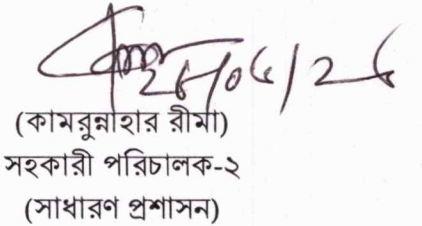 (কামরুন্নাহার রীমা)
সহকারী পরিচালক-২
(সাধারণ প্রশাসন)